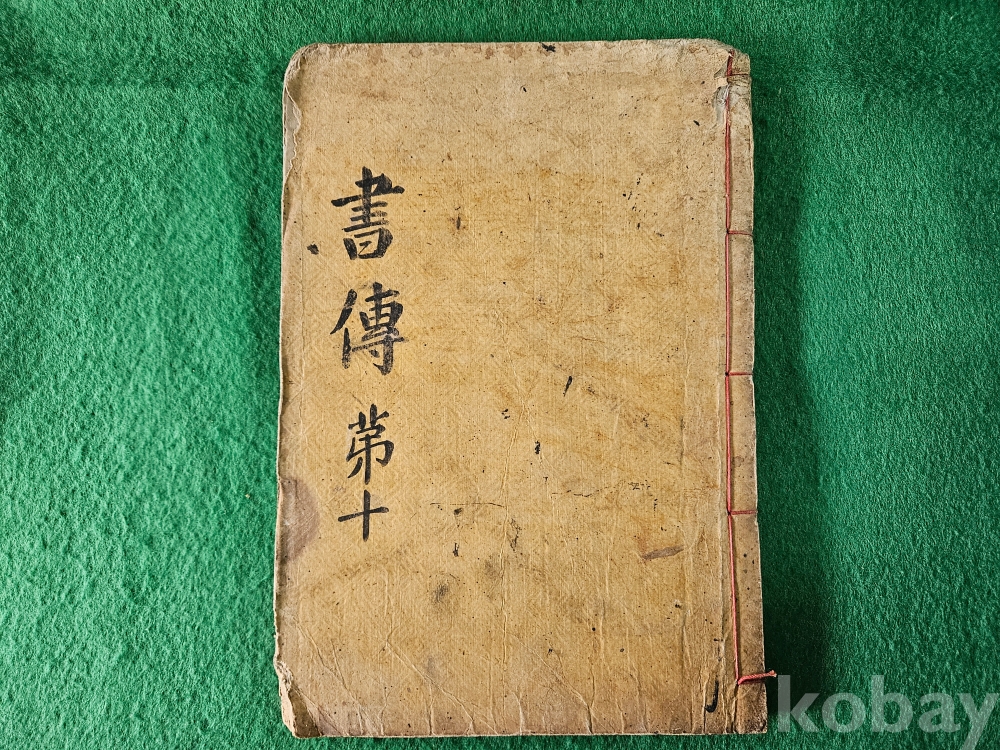 書傳 苐十
kobay